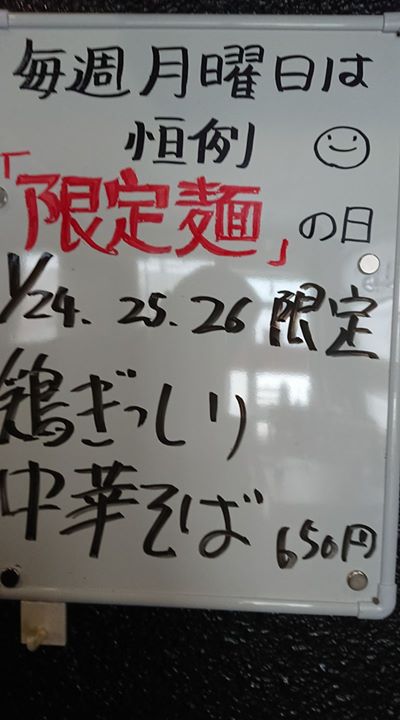 毎週月曜日は
恒例
「限定麺」の日
1/24.25.26限定
鶏ぎっしり
中華そば 650円